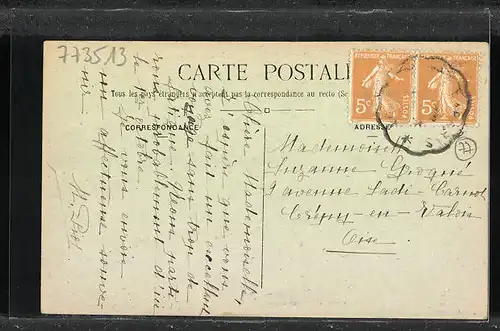 773513
CARTE POSTALE
Tous les pays étrangers n'acceptent pas la correspondance au recto (Se
CORRESPONDANCE
ADRESSE
Chère Mademoiselle,
J'espère que vous
avez fait un excellent
voyage sans trop de
fatigue. Nous partirons probablement d'ici
le octobre.
Je vous envoie
un affectueux souvenir
Mademoiselle
Suzanne
9 avenue Sadi-Carnot
Crépy-en-Valois
Oise
REPUBLIQUE FRANÇAISE
5c
POSTES
REPUBLIQUE FRANÇAISE
5c
POSTES